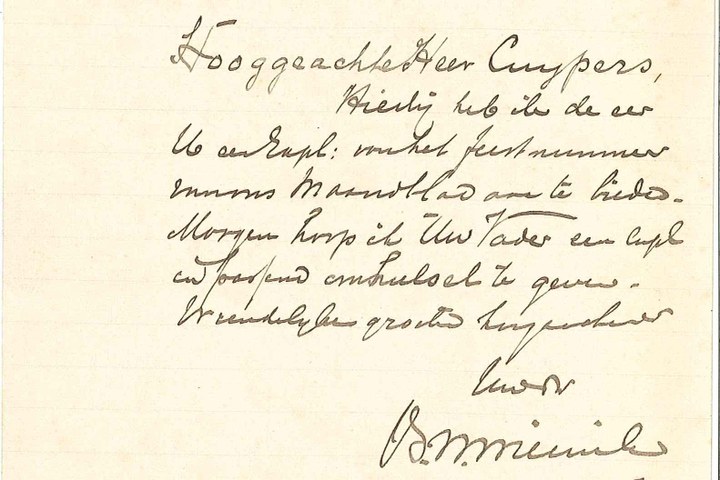 Hooggeachte Heer Cuypers,
Hierbij heb ik de eer
U een Expl: van het feestnummer
van ons Maandblad aan te bieden.
Morgen hoop ik Uw Vader een Expl
in passend omhulsel te geven.
Vriendelijke groeten hoogachtend
Uw dr
B. W.